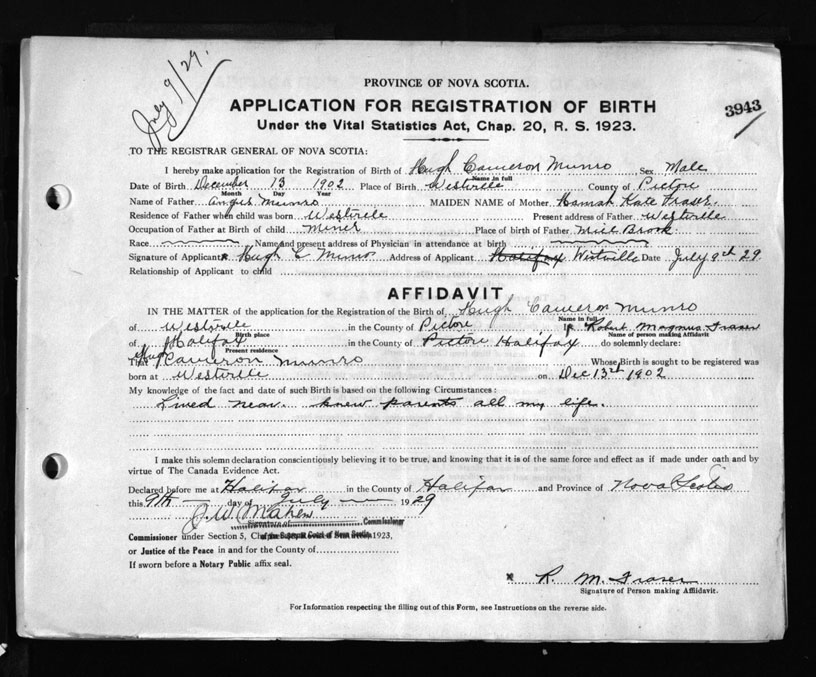 July 9/29.
PROVINCE OF NOVA SCOTIA.
APPLICATION FOR REGISTRATION OF BIRTH
3943
Under the Vital Statistics Act, Chap. 20, R. S. 1923.
TO THE REGISTRAR GENERAL OF NOVA SCOTIA:
I hereby make application for the Registration of Birth of Hugh Cameron Munro Sex Male
Name in full
Date of Birth December 13 1902 Place of Birth Westville County of Pictou
Month Day Year
Name of Father Angus Munro MAIDEN NAME of Mother Hannah Kate Fraser
Residence of Father when child was born Westville Present address of Father Westville
Occupation of Father at Birth of child Miner Place of birth of Father Mill Brook
Race Name and present address of Physician in attendance at birth
Signature of Applicant x Hugh C Munro Address of Applicant Halifax Westville Date July 9th 29
Relationship of Applicant to child
AFFIDAVIT
IN THE MATTER of the application for the Registration of the Birth of Hugh Cameron Munro
Name in full
of Westville in the County of Pictou I, Robert Magnus Fraser
Birth place Name of person making Affidavit
of Halifax in the County of Pictou Halifax do solemnly declare:
Present residence
That Hugh Cameron Munro Whose Birth is sought to be registered was
born at Westville on Dec 13th 1902
My knowledge of the fact and date of such Birth is based on the following Circumstances:
Lived near. knew parents all my life.
I make this solemn declaration conscientiously believing it to be true, and knowing that it is of the same force and effect as if made under oath and by
virtue of The Canada Evidence Act.
Declared before me at Halifax in the County of Halifax and Province of Nova Scotia
this 9th day of July 1929
Signature of Commissioner
Commissioner under Section 5, 1923,
or Justice of the Peace in and for the County of
If sworn before a Notary Public affix seal.
x R. M. Fraser
Signature of Person making Affidavit.
For Information respecting the filling out of this Form, see Instructions on the reverse side.